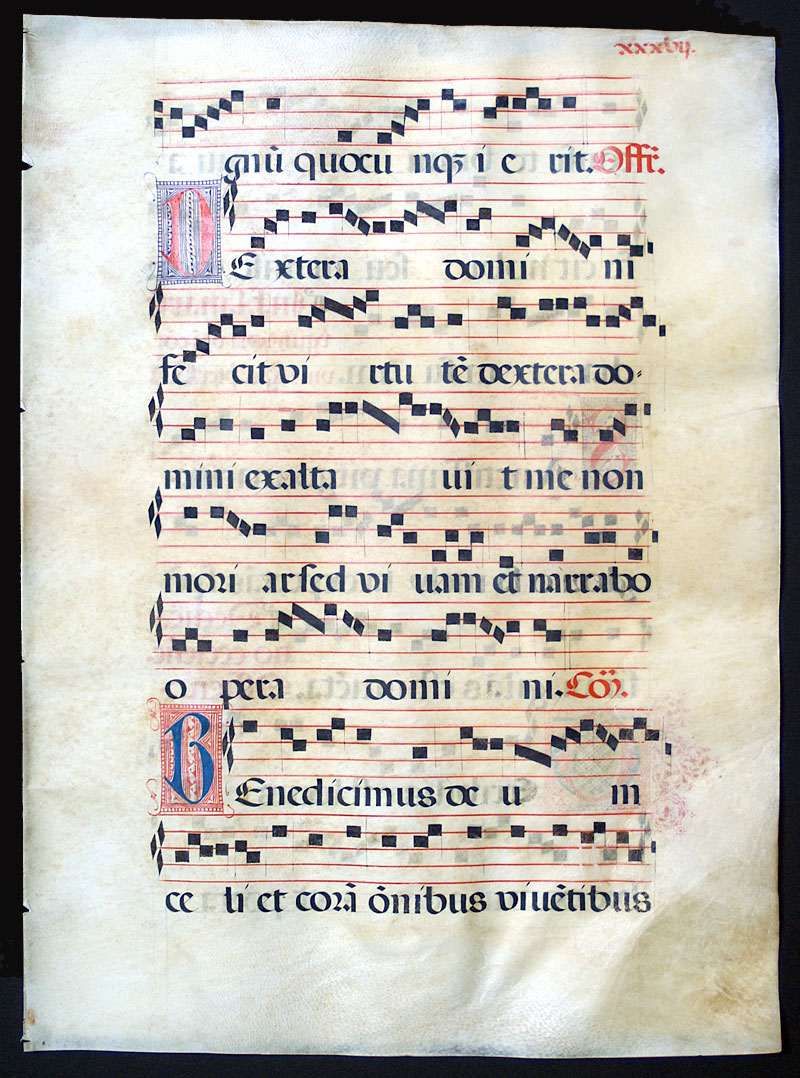 xxxvij.
gnū quocu nqȝ i e rit. Offr̄.
DExtera domi ni
fe cit vi rtu tē dextera do-
mini exalta ui t me non
mori ar sed vi uam et narrabo
o pera domi ni. Cōⁿ.
BEnedicimus de u m
ce li et corā ōnibus viuētibus